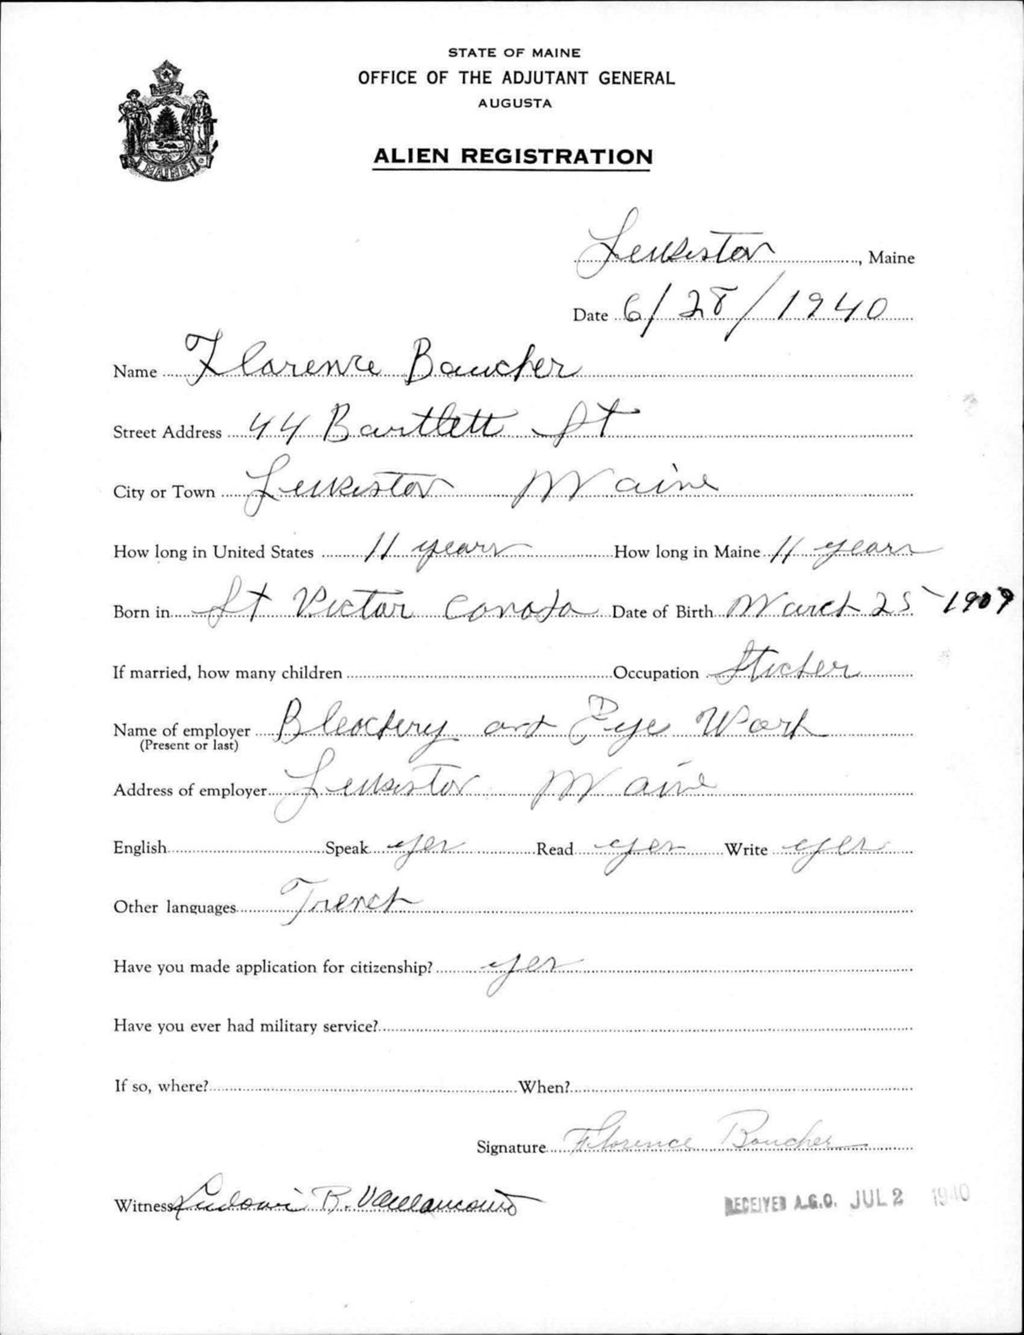 STATE OF MAINE
OFFICE OF THE ADJUTANT GENERAL
AUGUSTA
ALIEN REGISTRATION
MAINE
Lewiston, Maine
Date 6/28/1940
Name Florence Boucher
Street Address 44 Bartlett St
City or Town Lewiston Maine
How long in United States 11 years How long in Maine 11 years
Born in St Victor Canada Date of Birth March 25 - 1909
If married, how many children Occupation Sticher
Name of employer Bleachery and Dye Work
(Present or last)
Address of employer Lewiston Maine
English Speak yes Read yes Write yes
Other languages French
Have you made application for citizenship? yes
Have you ever had military service?
If so, where? When?
Signature Florence Boucher
Witness B. Vaillancourt
RECEIVED A.G.O. JUL 2 1940